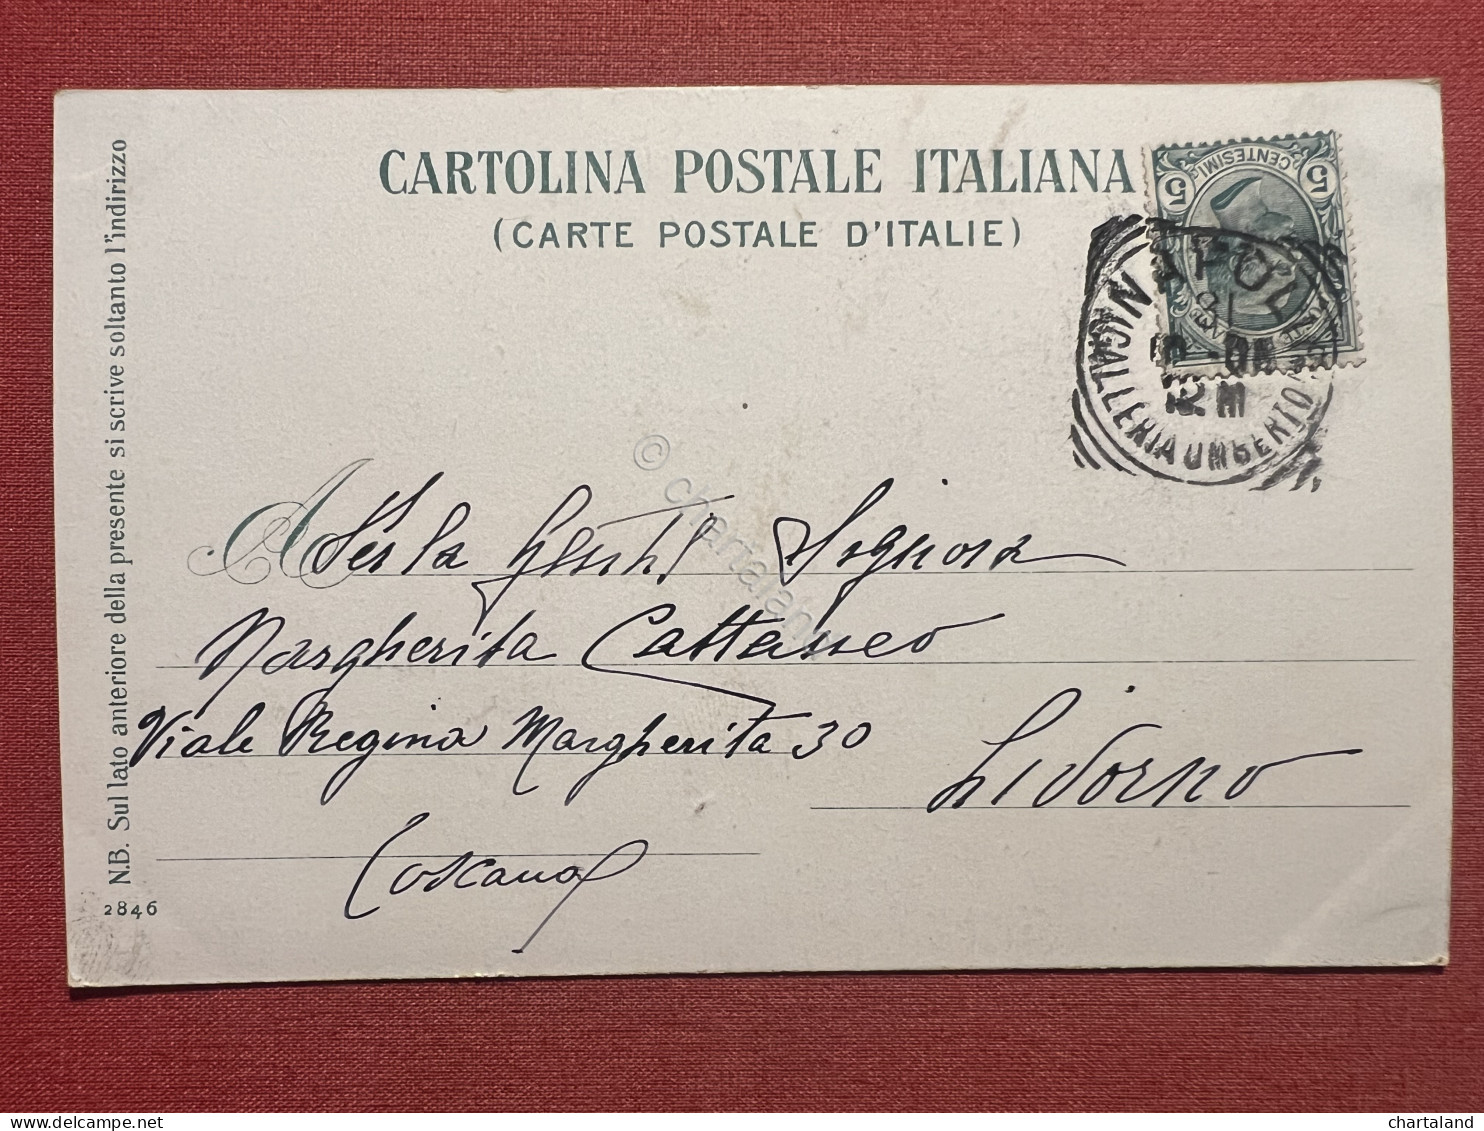 CARTOLINA POSTALE ITALIANA
(CARTE POSTALE D'ITALIE)
5 CENTESIMI 5
NAPOLI
GALLERIA UMBERTO
A
la Gentil Signora
Margherita Cattaneo
Viale Regina Margherita 30
Livorno
Toscana
N.B. Sul lato anteriore della presente si scrive soltanto l'indirizzo
2846
© chartaland
chartaland